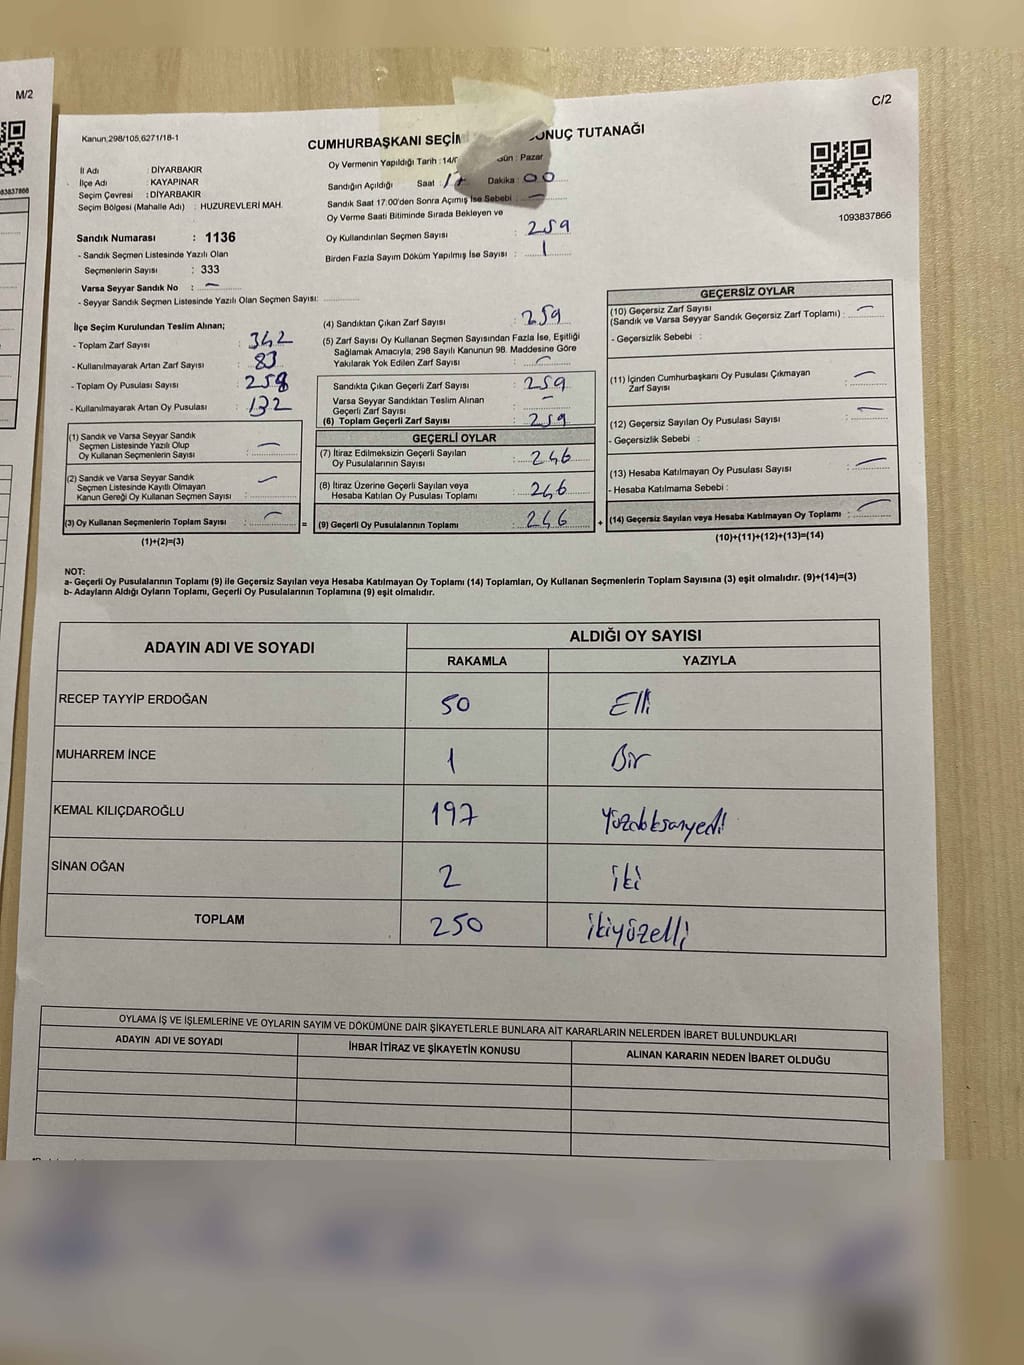 M/2
C/2
Kanun 298/105,6271/18-1
CUMHURBAŞKANI SEÇİM
ONUÇ TUTANAĞI
İl Adı : DİYARBAKIR
İlçe Adı : KAYAPINAR
Seçim Çevresi : DİYARBAKIR
Seçim Bölgesi (Mahalle Adı) : HUZUREVLERİ MAH.
Sandık Numarası : 1136
- Sandık Seçmen Listesinde Yazılı Olan
Seçmenlerin Sayısı : 333
Varsa Seyyar Sandık No : —
- Seyyar Sandık Seçmen Listesinde Yazılı Olan Seçmen Sayısı:
Oy Vermenin Yapıldığı Tarih : 14/ Gün : Pazar
Sandığın Açıldığı Saat : 17 Dakika : 00
Sandık Saat 17:00'den Sonra Açımış İse Sebebi : —
Oy Verme Saati Bitiminde Sırada Bekleyen ve
Oy Kullandırılan Seçmen Sayısı : 259
Birden Fazla Sayım Döküm Yapılmış İse Sayısı : 1
1093837866
83837866
İlçe Seçim Kurulundan Teslim Alınan;
- Toplam Zarf Sayısı : 342
- Kullanılmayarak Artan Zarf Sayısı : 83
- Toplam Oy Pusulası Sayısı : 258
- Kullanılmayarak Artan Oy Pusulası : 132
(1) Sandık ve Varsa Seyyar Sandık
Seçmen Listesinde Yazılı Olup
Oy Kullanan Seçmenlerin Sayısı : —
(2) Sandık ve Varsa Seyyar Sandık
Seçmen Listesinde Kayıtlı Olmayan
Kanun Gereği Oy Kullanan Seçmen Sayısı : —
(3) Oy Kullanan Seçmenlerin Toplam Sayısı : — =
(1)+(2)=(3)
(4) Sandıktan Çıkan Zarf Sayısı : 259
(5) Zarf Sayısı Oy Kullanan Seçmen Sayısından Fazla İse, Eşitliği
Sağlamak Amacıyla, 298 Sayılı Kanunun 98. Maddesine Göre
Yakılarak Yok Edilen Zarf Sayısı : —
Sandıkta Çıkan Geçerli Zarf Sayısı : 259
Varsa Seyyar Sandıktan Teslim Alınan
Geçerli Zarf Sayısı : —
(6) Toplam Geçerli Zarf Sayısı : 259
GEÇERLİ OYLAR
(7) İtiraz Edilmeksizin Geçerli Sayılan
Oy Pusulalarının Sayısı : 246
(8) İtiraz Üzerine Geçerli Sayılan veya
Hesaba Katılan Oy Pusulası Toplamı : 246
(9) Geçerli Oy Pusulalarının Toplamı : 246 +
GEÇERSİZ OYLAR
(10) Geçersiz Zarf Sayısı
(Sandık ve Varsa Seyyar Sandık Geçersiz Zarf Toplamı) : —
- Geçersizlik Sebebi :
(11) İçinden Cumhurbaşkanı Oy Pusulası Çıkmayan
Zarf Sayısı : —
(12) Geçersiz Sayılan Oy Pusulası Sayısı : —
- Geçersizlik Sebebi :
(13) Hesaba Katılmayan Oy Pusulası Sayısı : —
- Hesaba Katılmama Sebebi :
(14) Geçersiz Sayılan veya Hesaba Katılmayan Oy Toplamı : —
(10)+(11)+(12)+(13)=(14)
NOT:
a- Geçerli Oy Pusulalarının Toplamı (9) ile Geçersiz Sayılan veya Hesaba Katılmayan Oy Toplamı (14) Toplamları, Oy Kullanan Seçmenlerin Toplam Sayısına (3) eşit olmalıdır. (9)+(14)=(3)
b- Adayların Aldığı Oyların Toplamı, Geçerli Oy Pusulalarının Toplamına (9) eşit olmalıdır.
ADAYIN ADI VE SOYADI
ALDIĞI OY SAYISI
RAKAMLA YAZIYLA
RECEP TAYYİP ERDOĞAN 50 Elli
MUHARREM İNCE 1 Bir
KEMAL KILIÇDAROĞLU 197 Yüzdoksanyedi
SİNAN OĞAN 2 iki
TOPLAM 250 ikiyüzelli
OYLAMA İŞ VE İŞLEMLERİNE VE OYLARIN SAYIM VE DÖKÜMÜNE DAİR ŞİKAYETLERLE BUNLARA AİT KARARLARIN NELERDEN İBARET BULUNDUKLARI
ADAYIN ADI VE SOYADI İHBAR İTİRAZ VE ŞİKAYETİN KONUSU ALINAN KARARIN NEDEN İBARET OLDUĞU